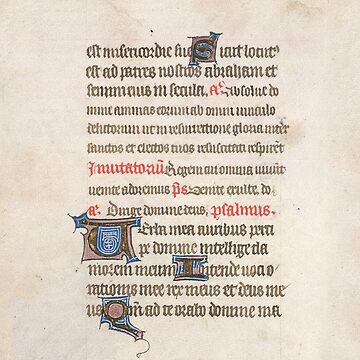 est misericordie sue Sicut locut᷒
est ad patres nostros abraham et
semini eius in secula. a͞. Absolue do
mine animas eorum ab omni uinculo
delictorum ut in resurrectione gloria inter
sanctos et electos tuos resuscitati respirẽt
Inuitatoriũ Regem cui omnia uiuũt
uenite adoremus p͞s Uenite exulte. do
a͞. Dirige domine deus. psalmus.
Uerba mea auribus perci
pe domine intellige cla
morem meum Intende uoci o
rationis mee rex meus et deus me
us Qm̃ ad te orabo domine ma